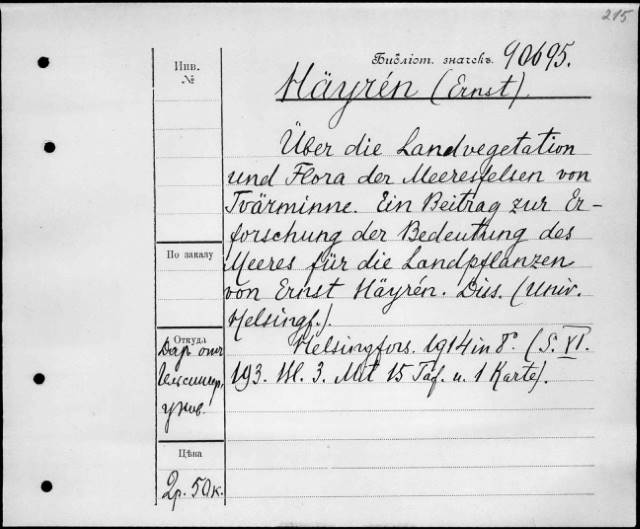 215
Библіот. значекъ. 90695.
Инв.
№
Häyrén (Ernst).
Über die Landvegetation
und Flora der Meeresfelsen von
Tvärminne. Ein Beitrag zur Er-
forschung der Bedeutung des
По заказу
Meeres für die Landpflanzen
von Ernst Häyrén. Diss. (Univ.
Helsingf.).
Откуда
Helsingfors. 1914 in 8º. (S. VI.
193. Bl. 3. Mit 15 Taf. u. 1 Karte).
Дар. отъ
Гельсингф.
унив.
Цѣна
2р. 50к.